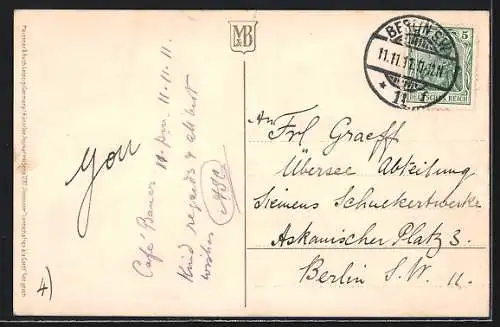 MB
BERLIN S.W.
11.11.11. 11-12 N
* 11
5
DEUTSCHES REICH
you
Café Bauer 10 pm. 11.11.11.
Kind regards & all best
wishes
An
Frl Graeff
Übersee Abteilung
Siemens Schuckertwerke
Askanischer Platz 3.
Berlin S.W. 11.
4)